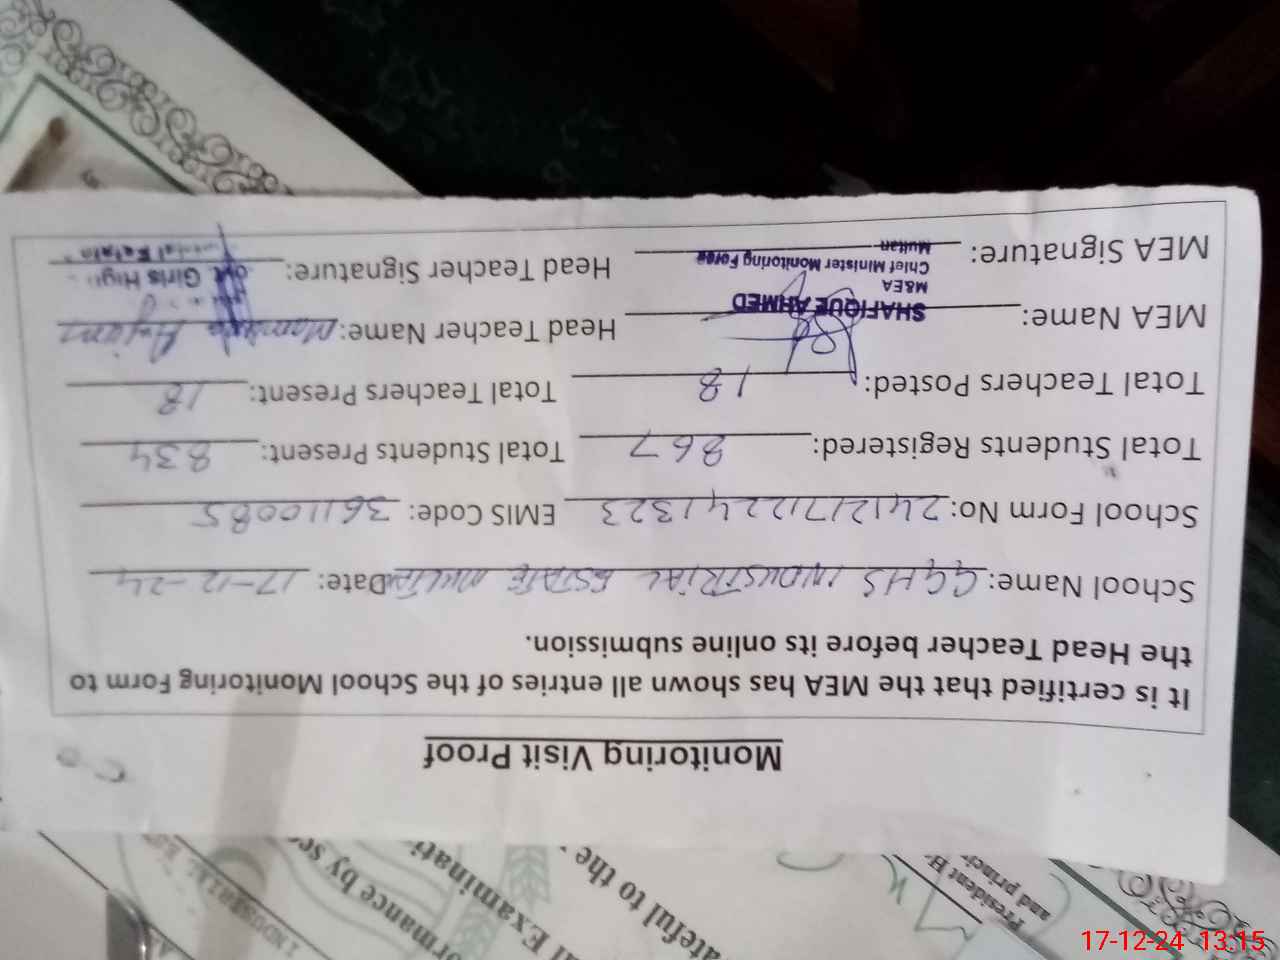 Monitoring Visit Proof
It is certified that the MEA has shown all entries of the School Monitoring Form to
the Head Teacher before its online submission.
School Name: GGHS INDUSTRIAL ESTATE MULTAN Date: 17-12-24
School Form No: 24121712241323 EMIS Code: 36110085
Total Students Registered: 867 Total Students Present: 834
Total Teachers Posted: 18 Total Teachers Present: 18
MEA Name: SHAFIQUE AHMED Head Teacher Name:
M&EA
Chief Minister Monitoring Force
Multan
MEA Signature: Head Teacher Signature:
Govt. Girls High
Estate
President
and princi
ateful to the
Examinati
rmance by se
INDUSTRIAL
17-12-24 13:15